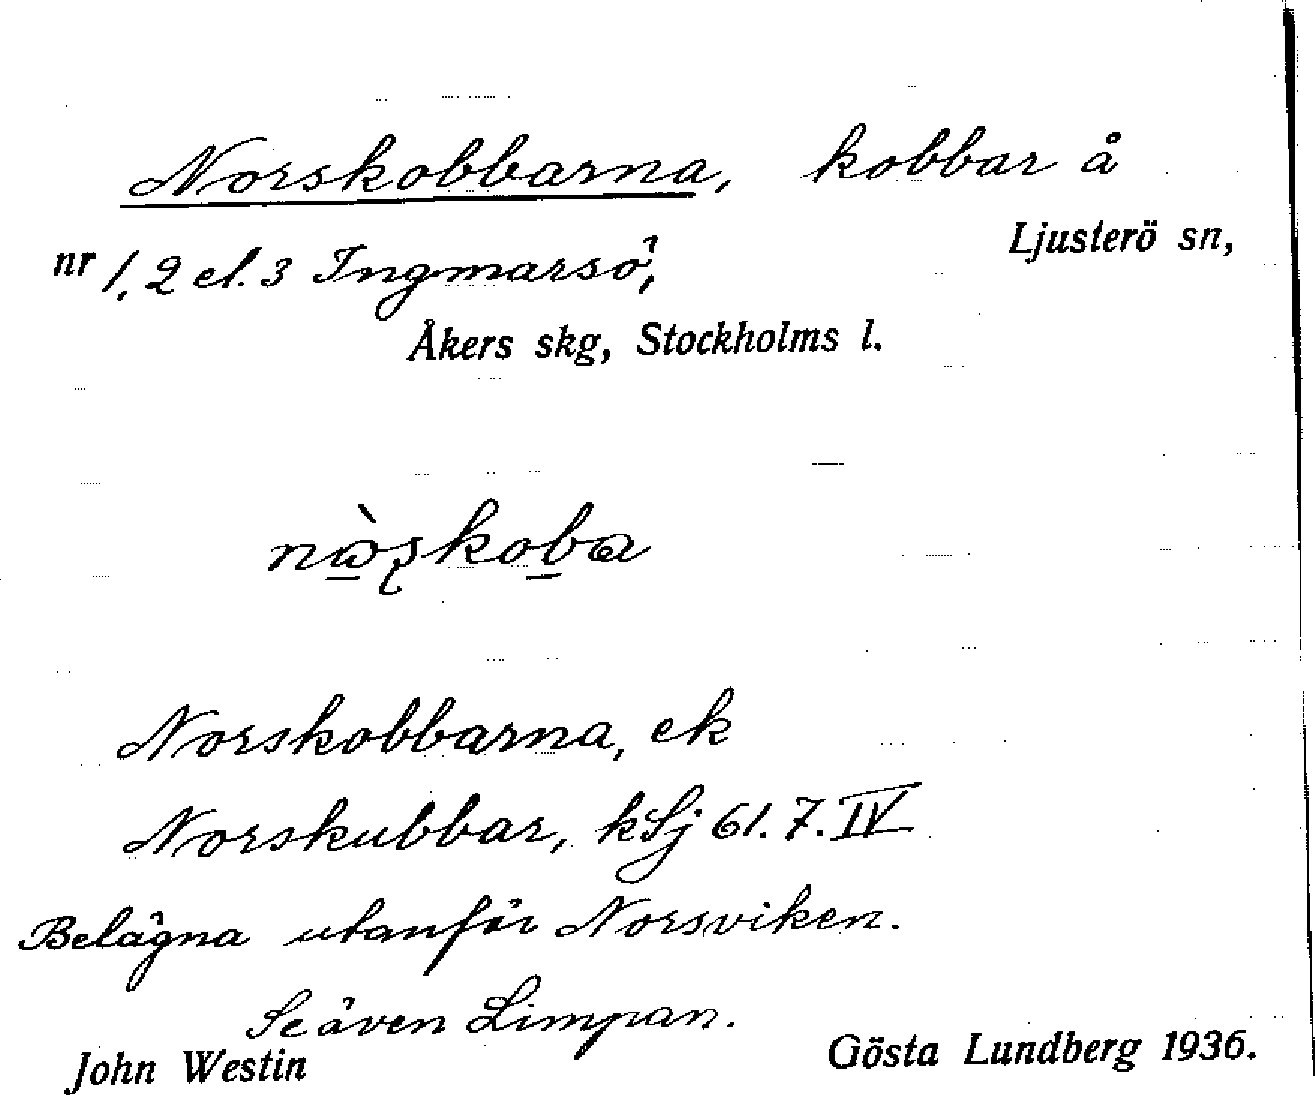 Norskobbarna, kobbar å
Ljusterö sn,
nr 1, 2 el. 3 Ingmarsö,
Åkers skg, Stockholms l.
Norskobbarna, ek
Norskubbar, kSj 61. 7. IV
Belägna utanför Norsviken.
Se även Limpan.
John Westin Gösta Lundberg 1936.